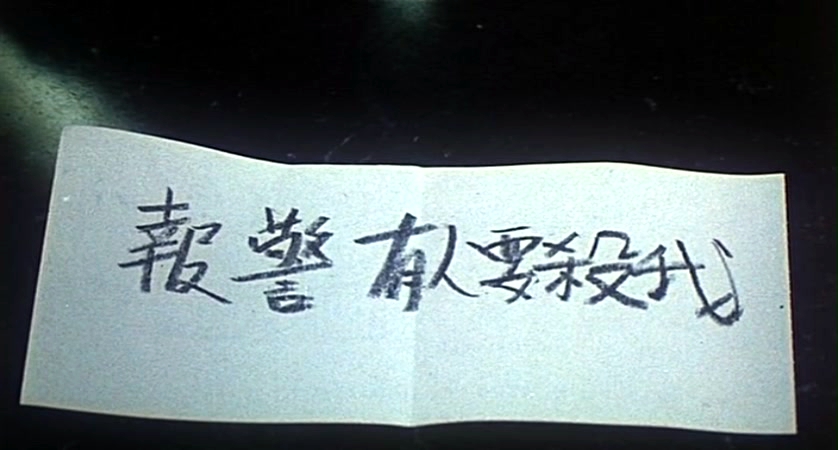 報警有人要殺我